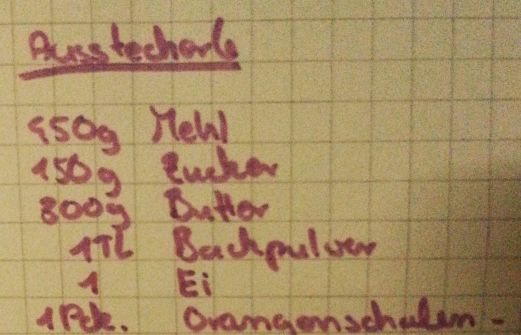 Ausstecherle
450g Mehl
150g Zucker
300g Butter
1TL Backpulver
1 Ei
1Pck. Orangenschalen-